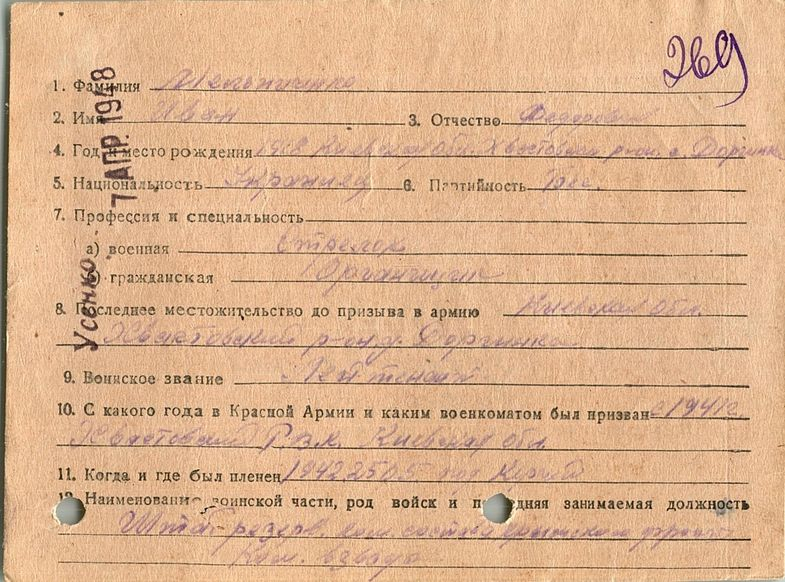 269
1. Фамилия Мельниченко
2. Имя Иван 3. Отчество Федорович
4. Год и место рождения Киевская обл. Хвастовский р-он с.
5. Национальность Украинец 6. Партийность
7. Профессия и специальность
а) военная Стрелок
б) гражданская
8. Последнее местожительство до призыва в армию Киевская обл.
Хвастовский р-он
9. Воинское звание Лейтенант
10. С какого года в Красной Армии и каким военкоматом был призван с 1941 г.
Хвастовский Р.В.К. Киевская обл
11. Когда и где был пленен 1942 25 05 под
12. Наименование воинской части, род войск и последняя занимаемая должность
Штаб резерв ком состава крымского фронта
Ком. взвода
Усенко 7 АПР. 1948